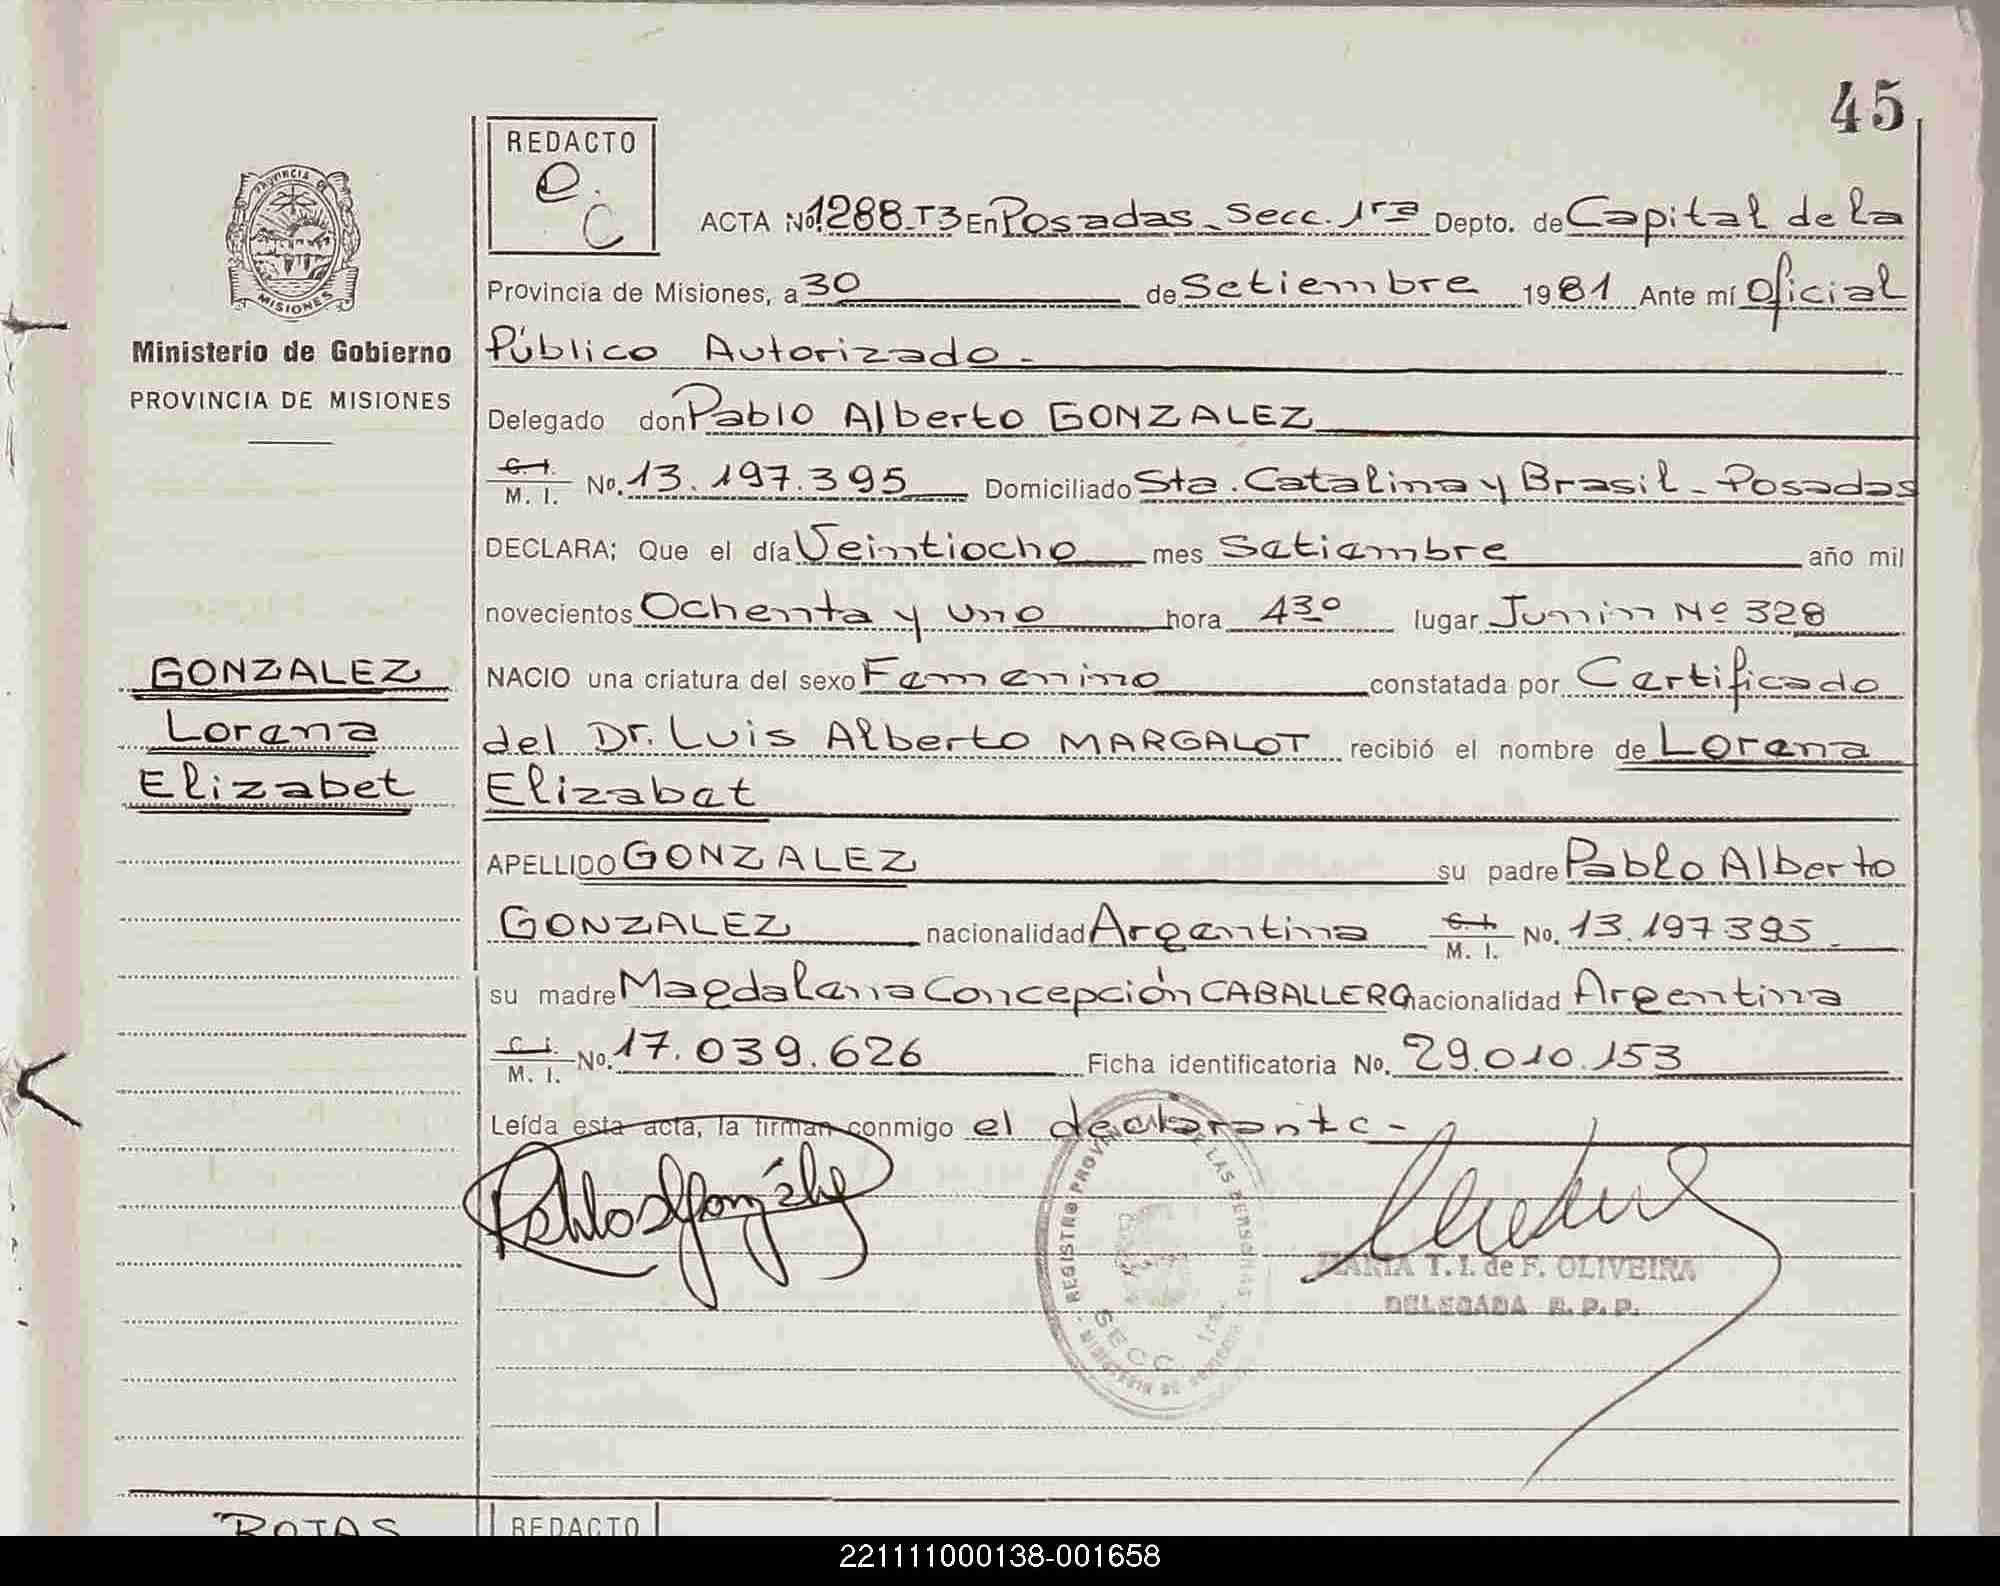 45
REDACTO
e.
C
ACTA No. 1288-T3 En Posadas - Secc. 1ra Depto. de Capital de la
PROVINCIA DE
MISIONES
Provincia de Misiones, a 30 de Setiembre 1981 Ante mí Oficial
Ministerio de Gobierno
Público Autorizado.-
PROVINCIA DE MISIONES
Delegado don Pablo Alberto GONZALEZ
C. I.
M. I. No. 13.197.395 Domiciliado Sta. Catalina y Brasil - Posadas
DECLARA: Que el día Veintiocho mes Setiembre año mil
novecientos Ochenta y uno hora 430 lugar Junin Nº 328
GONZALEZ
NACIO una criatura del sexo Femenino constatada por Certificado
Lorena
del Dr. Luis Alberto MARGALOT recibió el nombre de Lorena
Elizabet
Elizabet
APELLIDO GONZALEZ su padre Pablo Alberto
GONZALEZ nacionalidad Argentina C. I. M. I. No. 13.197.395
su madre Magdalena Concepción CABALLERO nacionalidad Argentina
C. I.
M. I. No. 17.039.626 Ficha identificatoria No. 29.010.153
Leída esta acta, la firman conmigo el declarante -
REGISTRO PROVINCIAL DE LAS PERSONAS
SECC. 1ra.
MINISTERIO DE GOBIERNO
MARIA T. I. de F. OLIVEIRA
DELEGADA R. P. P.
ROJAS
REDACTO
221111000138-001658